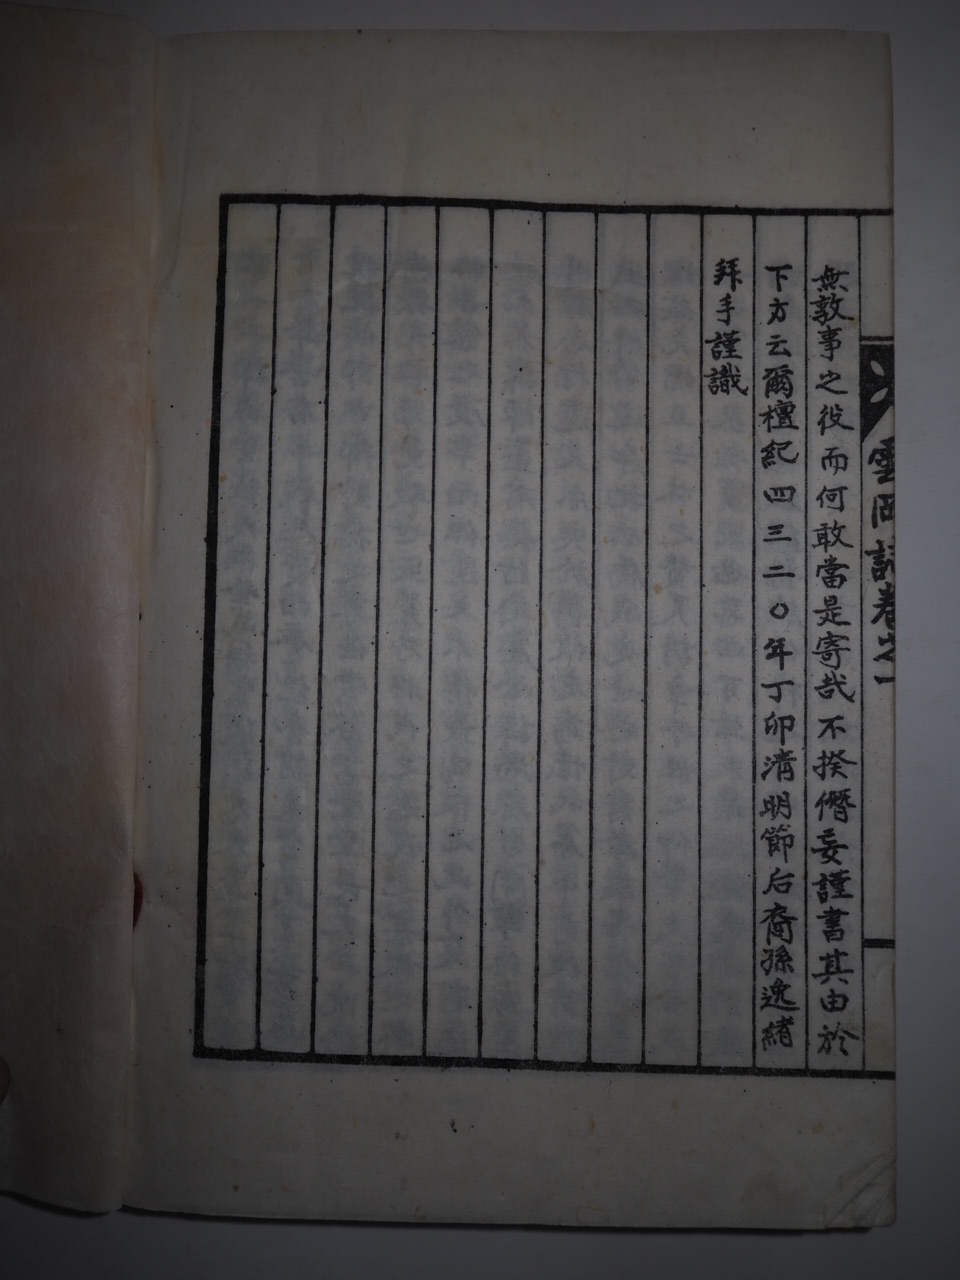 雲岡誌卷之一
無敦事之役而何敢當是寄哉不揆僭妄謹書其由於
下方云爾檀紀四三二〇年丁卯淸明節后裔孫逸緖
拜手謹識